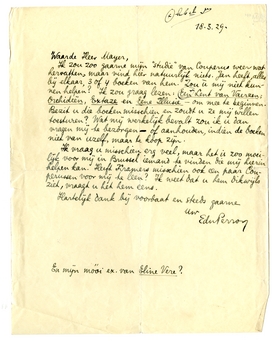 18-3.29.
Waarde Heer Mayer,
Ik zou zoo gaarne mijn studie van Couperus weer wat
hervatten, maar vind hier natuurlijk niets. Jan heeft, alles
bij elkaar, 3 of 4 boeken van hem. Zou u mij niet kun-
nen helpen? Ik zou graag lezen: Een lent van Vaerzen,
Orchideeën, Extaze en Eene Illuzie - om mee te beginnen.
Bezit u die boeken misschien en zoudt u ze mij willen
toesturen? Wat mij werkelijk bevalt zou ik u dan
vragen mij te bezorgen - of aanhouden, indien de boeken
niet van uzelf, maar te koop zijn.
Ik vraag u misschien erg veel, maar het is zoo moei-
lijk voor mij in Brussel iemand te vinden die mij hierin
helpen kan. Heeft Greshoff misschien ook een paar Cou-
perussen voor mij te leen? Ik weet dat u hem dikwijls
ziet, vraagt u het hem eens.
Hartelijk dank bij voorbaat en steeds gaarne
uw
EduPerron
En mijn mooi ex. van Eline Vere?